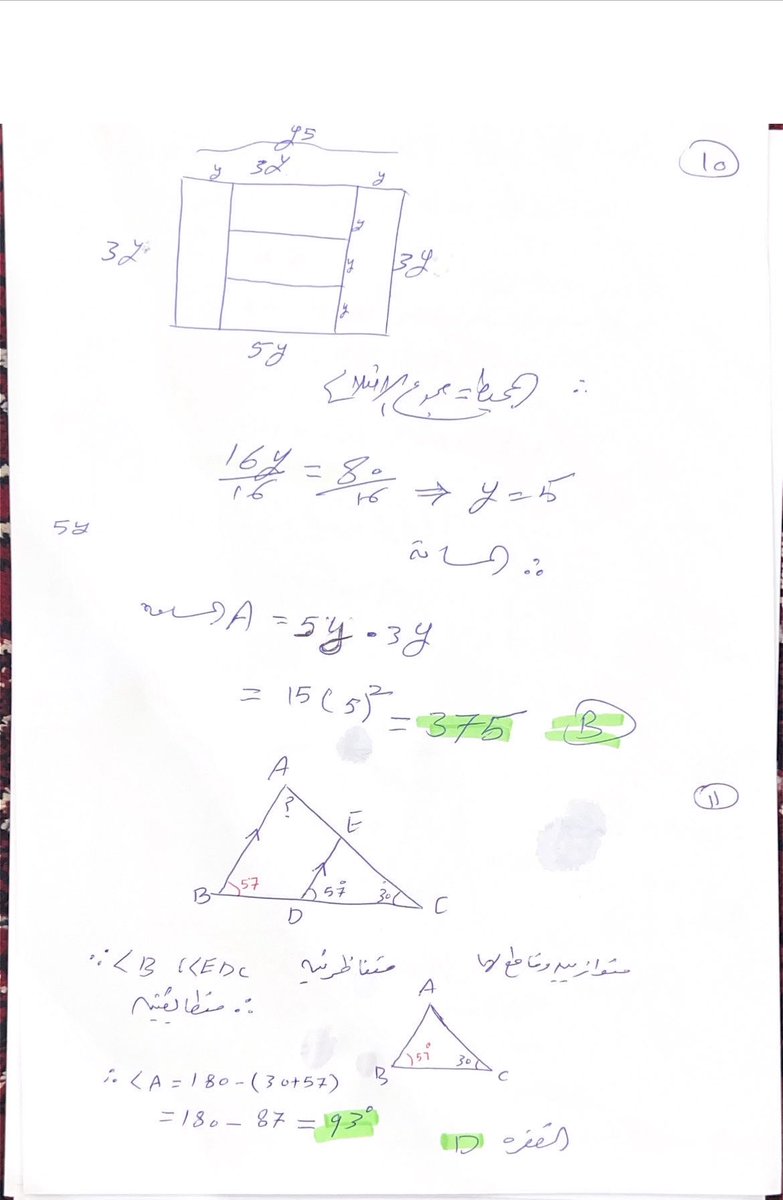 10
y5
y 3y y
3y y y y 3y
5y
∴ المحيط = مجموع الأضلاع
16y/16 = 80/16 ⇒ y = 5
5y
∴ المساحة
المساحة A = 5y · 3y
= 15(5)² = 375 B
11
A
?
E
B 57 D 57° 30° C
∵ <B , <EDC متناظرتين متوازيين وقاطع لهما
∴ متطابقتين
A
B 57° 30 C
∴ <A = 180 - (30+57)
= 180 - 87 = 93°
الفقره D